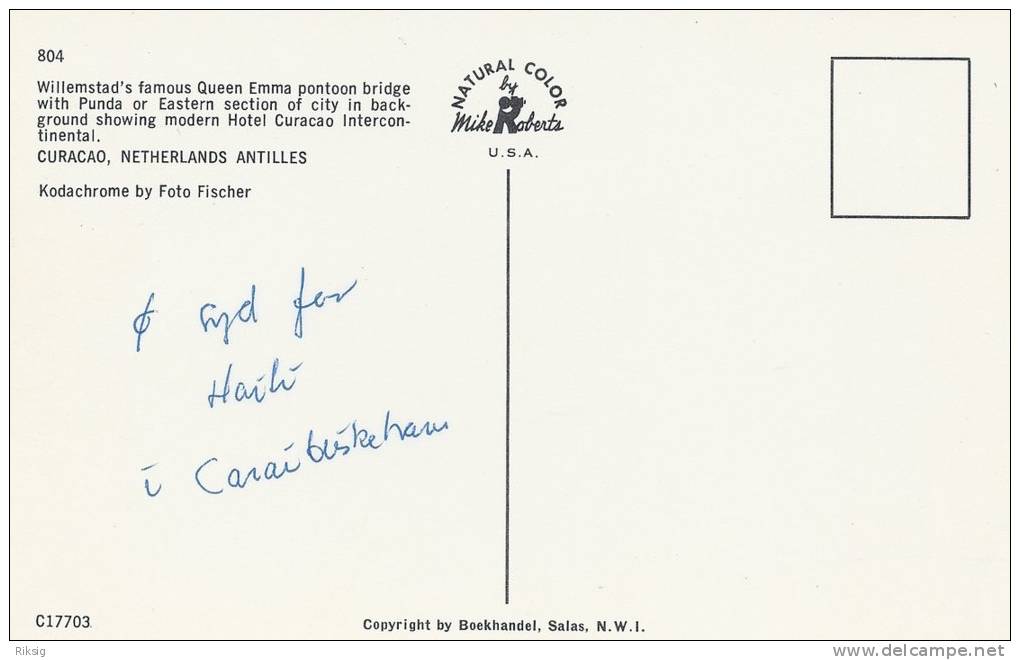 804
Willemstad's famous Queen Emma pontoon bridge
with Punda or Eastern section of city in back-
ground showing modern Hotel Curacao Intercon-
tinental.
CURACAO, NETHERLANDS ANTILLES
Kodachrome by Foto Fischer
NATURAL COLOR
by
Mike Roberts
U.S.A.
ø syd for
Haiti
i
C17703
Copyright by Boekhandel, Salas, N.W.I.
Riksig
delcampe.net